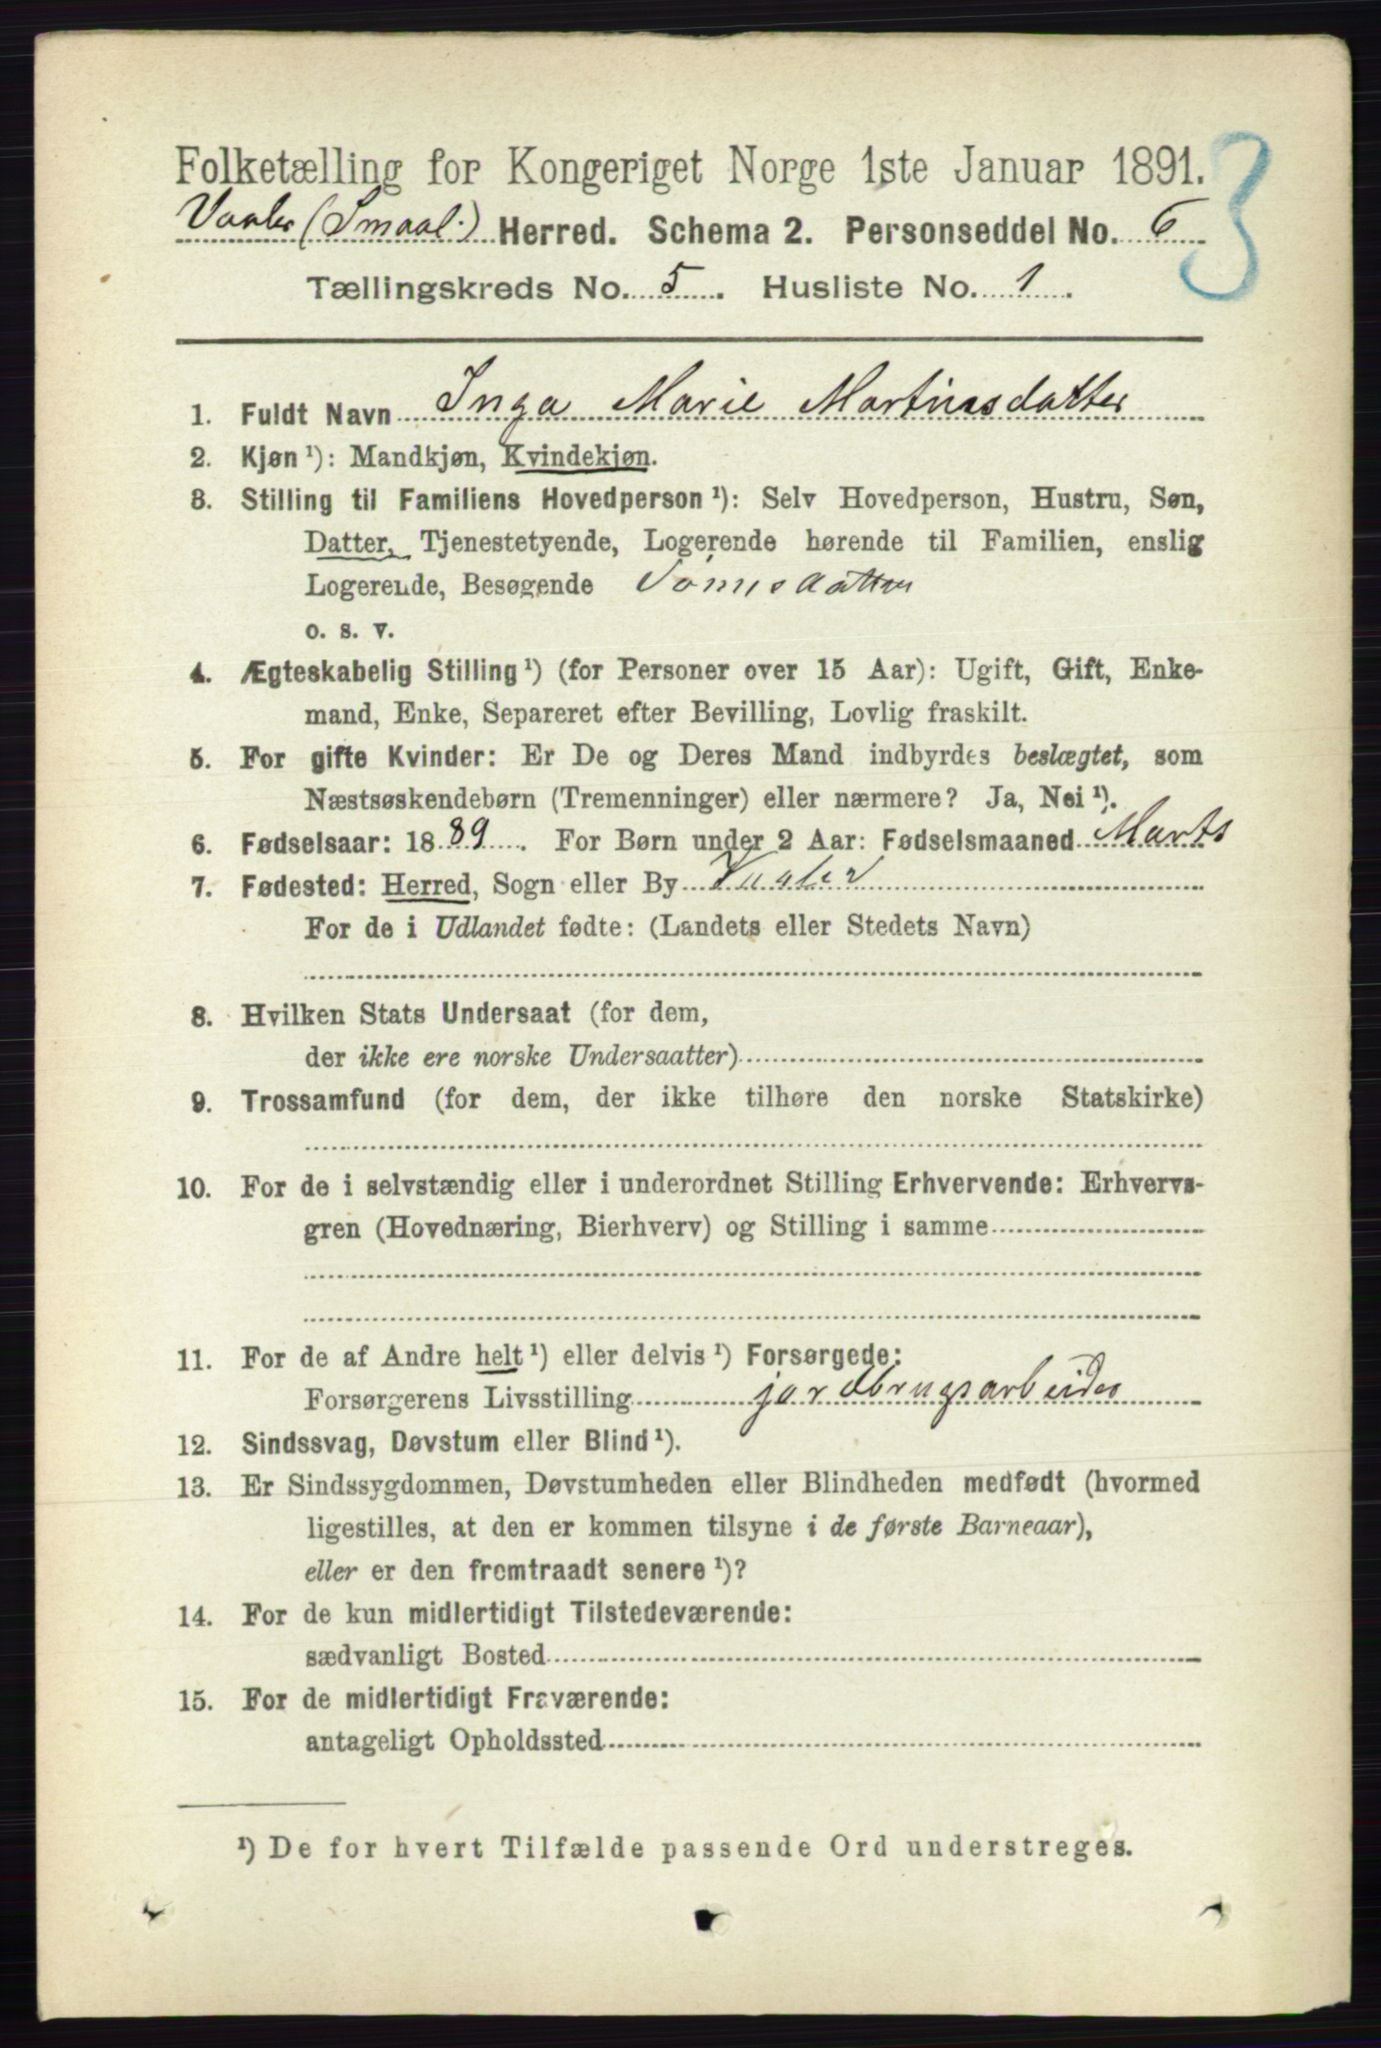 Folketælling for Kongeriget Norge 1ste Januar 1891.
3
Vaaler (Smaal.) Herred. Schema 2. Personseddel No. 6
Tællingskreds No. 5. Husliste No. 1.
1. Fuldt Navn Inga Marie Martinsdatter
2. Kjøn ¹): Mandkjøn, Kvindekjøn.
3. Stilling til Familiens Hovedperson ¹): Selv Hovedperson, Hustru, Søn,
Datter, Tjenestetyende, Logerende hørende til Familien, enslig
Logerende, Besøgende Sønnsdatter
o. s. v.
4. Ægteskabelig Stilling ¹) (for Personer over 15 Aar): Ugift, Gift, Enke-
mand, Enke, Separeret efter Bevilling, Lovlig fraskilt.
5. For gifte Kvinder: Er De og Deres Mand indbyrdes beslægtet, som
Næstsøskendebørn (Tremenninger) eller nærmere? Ja, Nei ¹).
6. Fødselsaar: 1889. For Børn under 2 Aar: Fødselsmaaned Marts
7. Fødested: Herred, Sogn eller By Vaaler
For de i Udlandet fødte: (Landets eller Stedets Navn)
8. Hvilken Stats Undersaat (for dem,
der ikke ere norske Undersaatter)
9. Trossamfund (for dem, der ikke tilhøre den norske Statskirke)
10. For de i selvstændig eller i underordnet Stilling Erhvervende: Erhvervs-
gren (Hovednæring, Bierhverv) og Stilling i samme
11. For de af Andre helt ¹) eller delvis ¹) Forsørgede:
Forsørgerens Livsstilling jordbrugsarbeider
12. Sindssvag, Døvstum eller Blind ¹).
13. Er Sindssygdommen, Døvstumheden eller Blindheden medfødt (hvormed
ligestilles, at den er kommen tilsyne i de første Barneaar),
eller er den fremtraadt senere ¹)?
14. For de kun midlertidigt Tilstedeværende:
sædvanligt Bosted
15. For de midlertidigt Fraværende:
antageligt Opholdssted
¹) De for hvert Tilfælde passende Ord understreges.